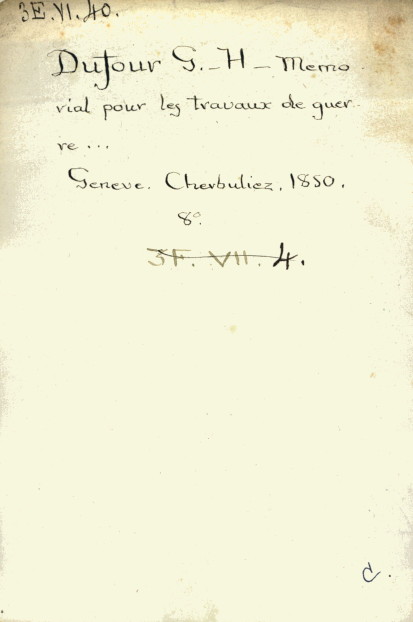 3E.VI.40.
Dufour G.-H- Memo
rial pour les travaux de guer-
re ...
Geneve. Cherbuliez, 1850.
8º.
3F. VII. 4.
C.